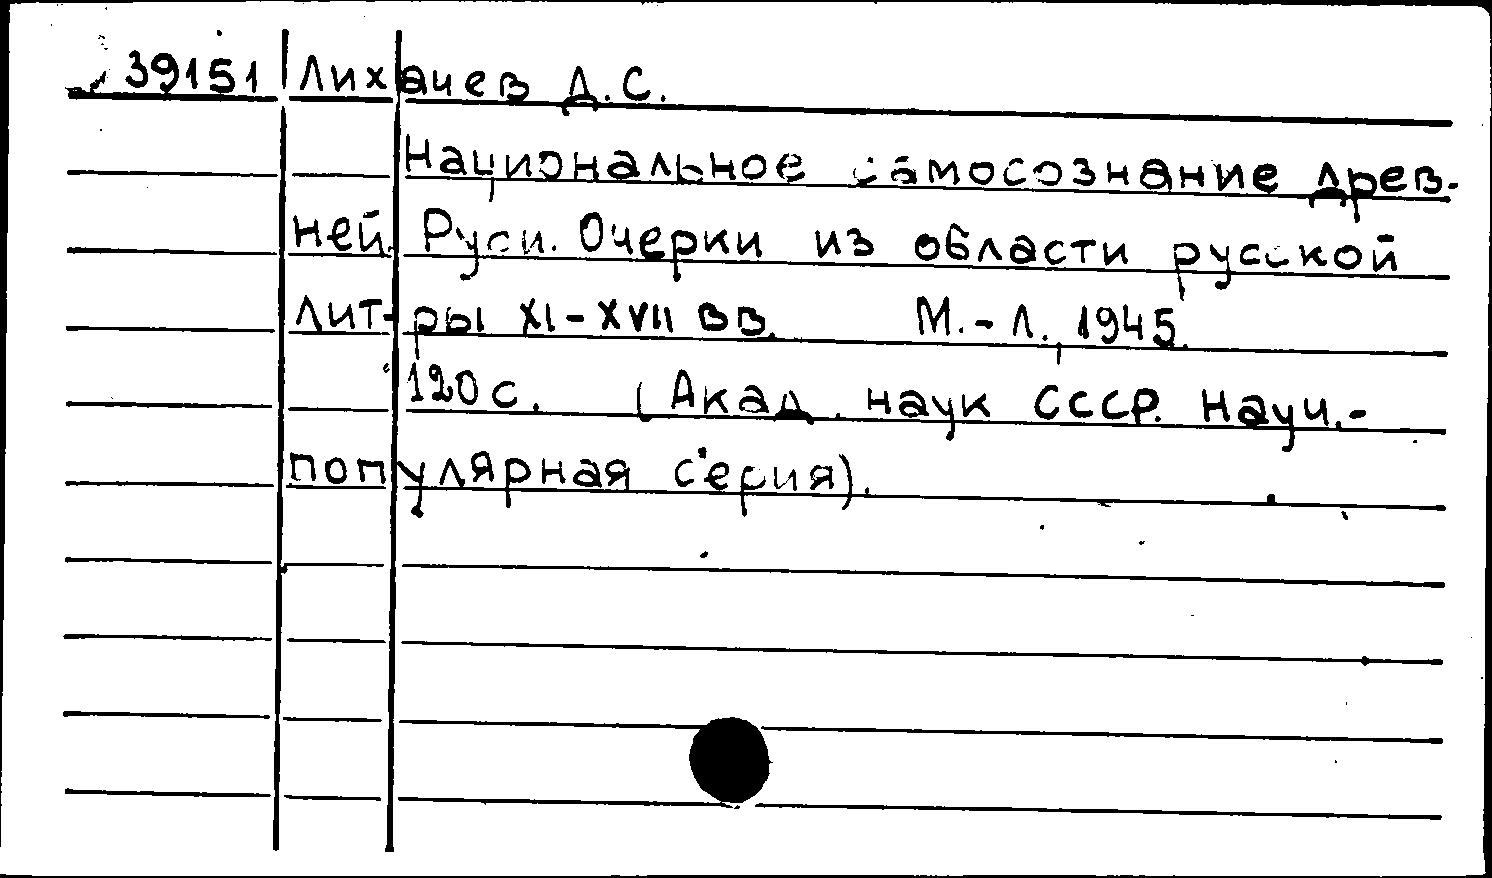 39151 Лихачев Д.С.
Национальное самосознание древ-
ней Руси. Очерки из области русской
лит-ры XI-XVII вв. М.-Л., 1945.
120 с. (Акад. наук СССР. Науч.-
популярная серия).